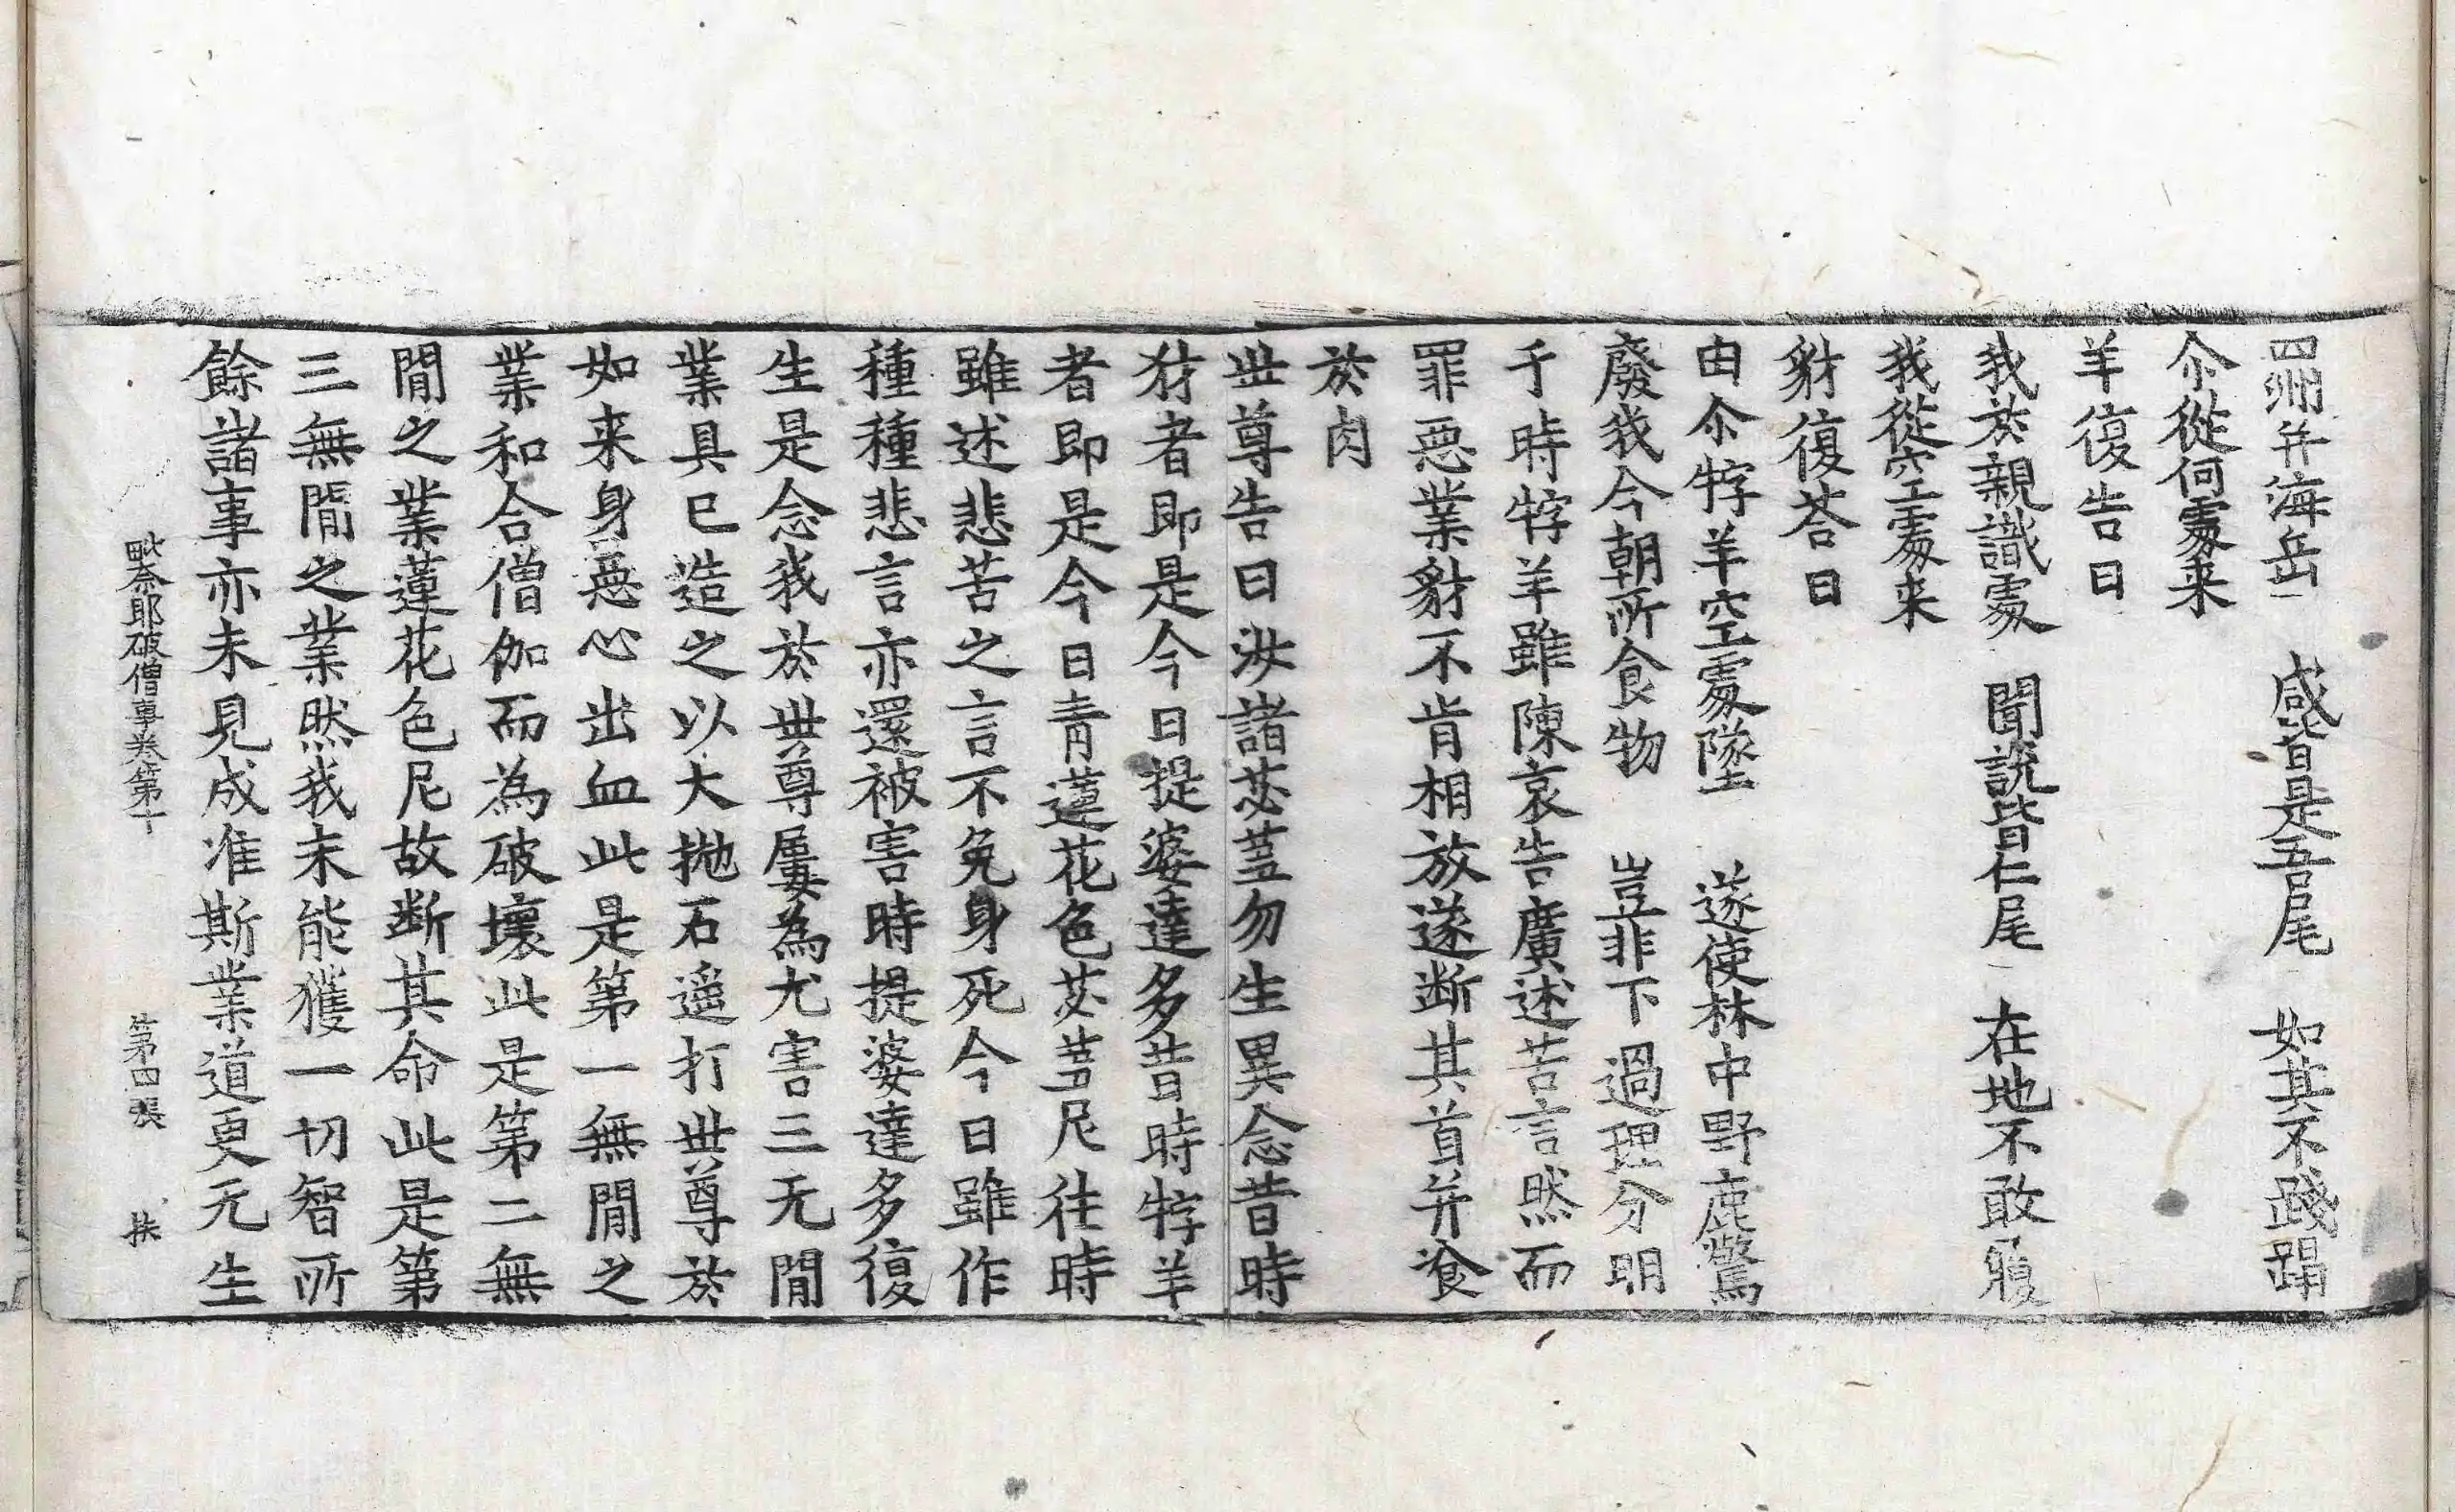 四洲并海岳　咸皆是吾尾　如其不踐蹋
尒從何處来
羊復告曰
我於親識處　聞說皆仁尾　在地不敢履
我從空處来
豺復荅曰
由尒牸羊空處墜　遂使林中野鹿驚
廢我今朝所食物　豈非下過理分明
于時牸羊雖陳哀告廣述苦言然而
罪惡業豺不肯相放遂断其首并飡
於肉
世尊告曰汝諸苾蒭勿生異念昔時
豺者即是今日提婆達多昔時牸羊
者即是今日青蓮花色苾蒭尼往時
雖述悲苦之言不免身死今日雖作
種種悲言亦還被害時提婆達多復
生是念我於世尊屢為尤害三无閒
業具已造之以大拋石遥打世尊於
如来身惡心出血此是第一無閒之
業和合僧伽而為破壞此是第二無
閒之業蓮花色尼故断其命此是第
三無閒之業然我未能獲一切智所
餘諸事亦未見成准斯業道更无生
毗奈耶破僧事卷第十　第四張　扶